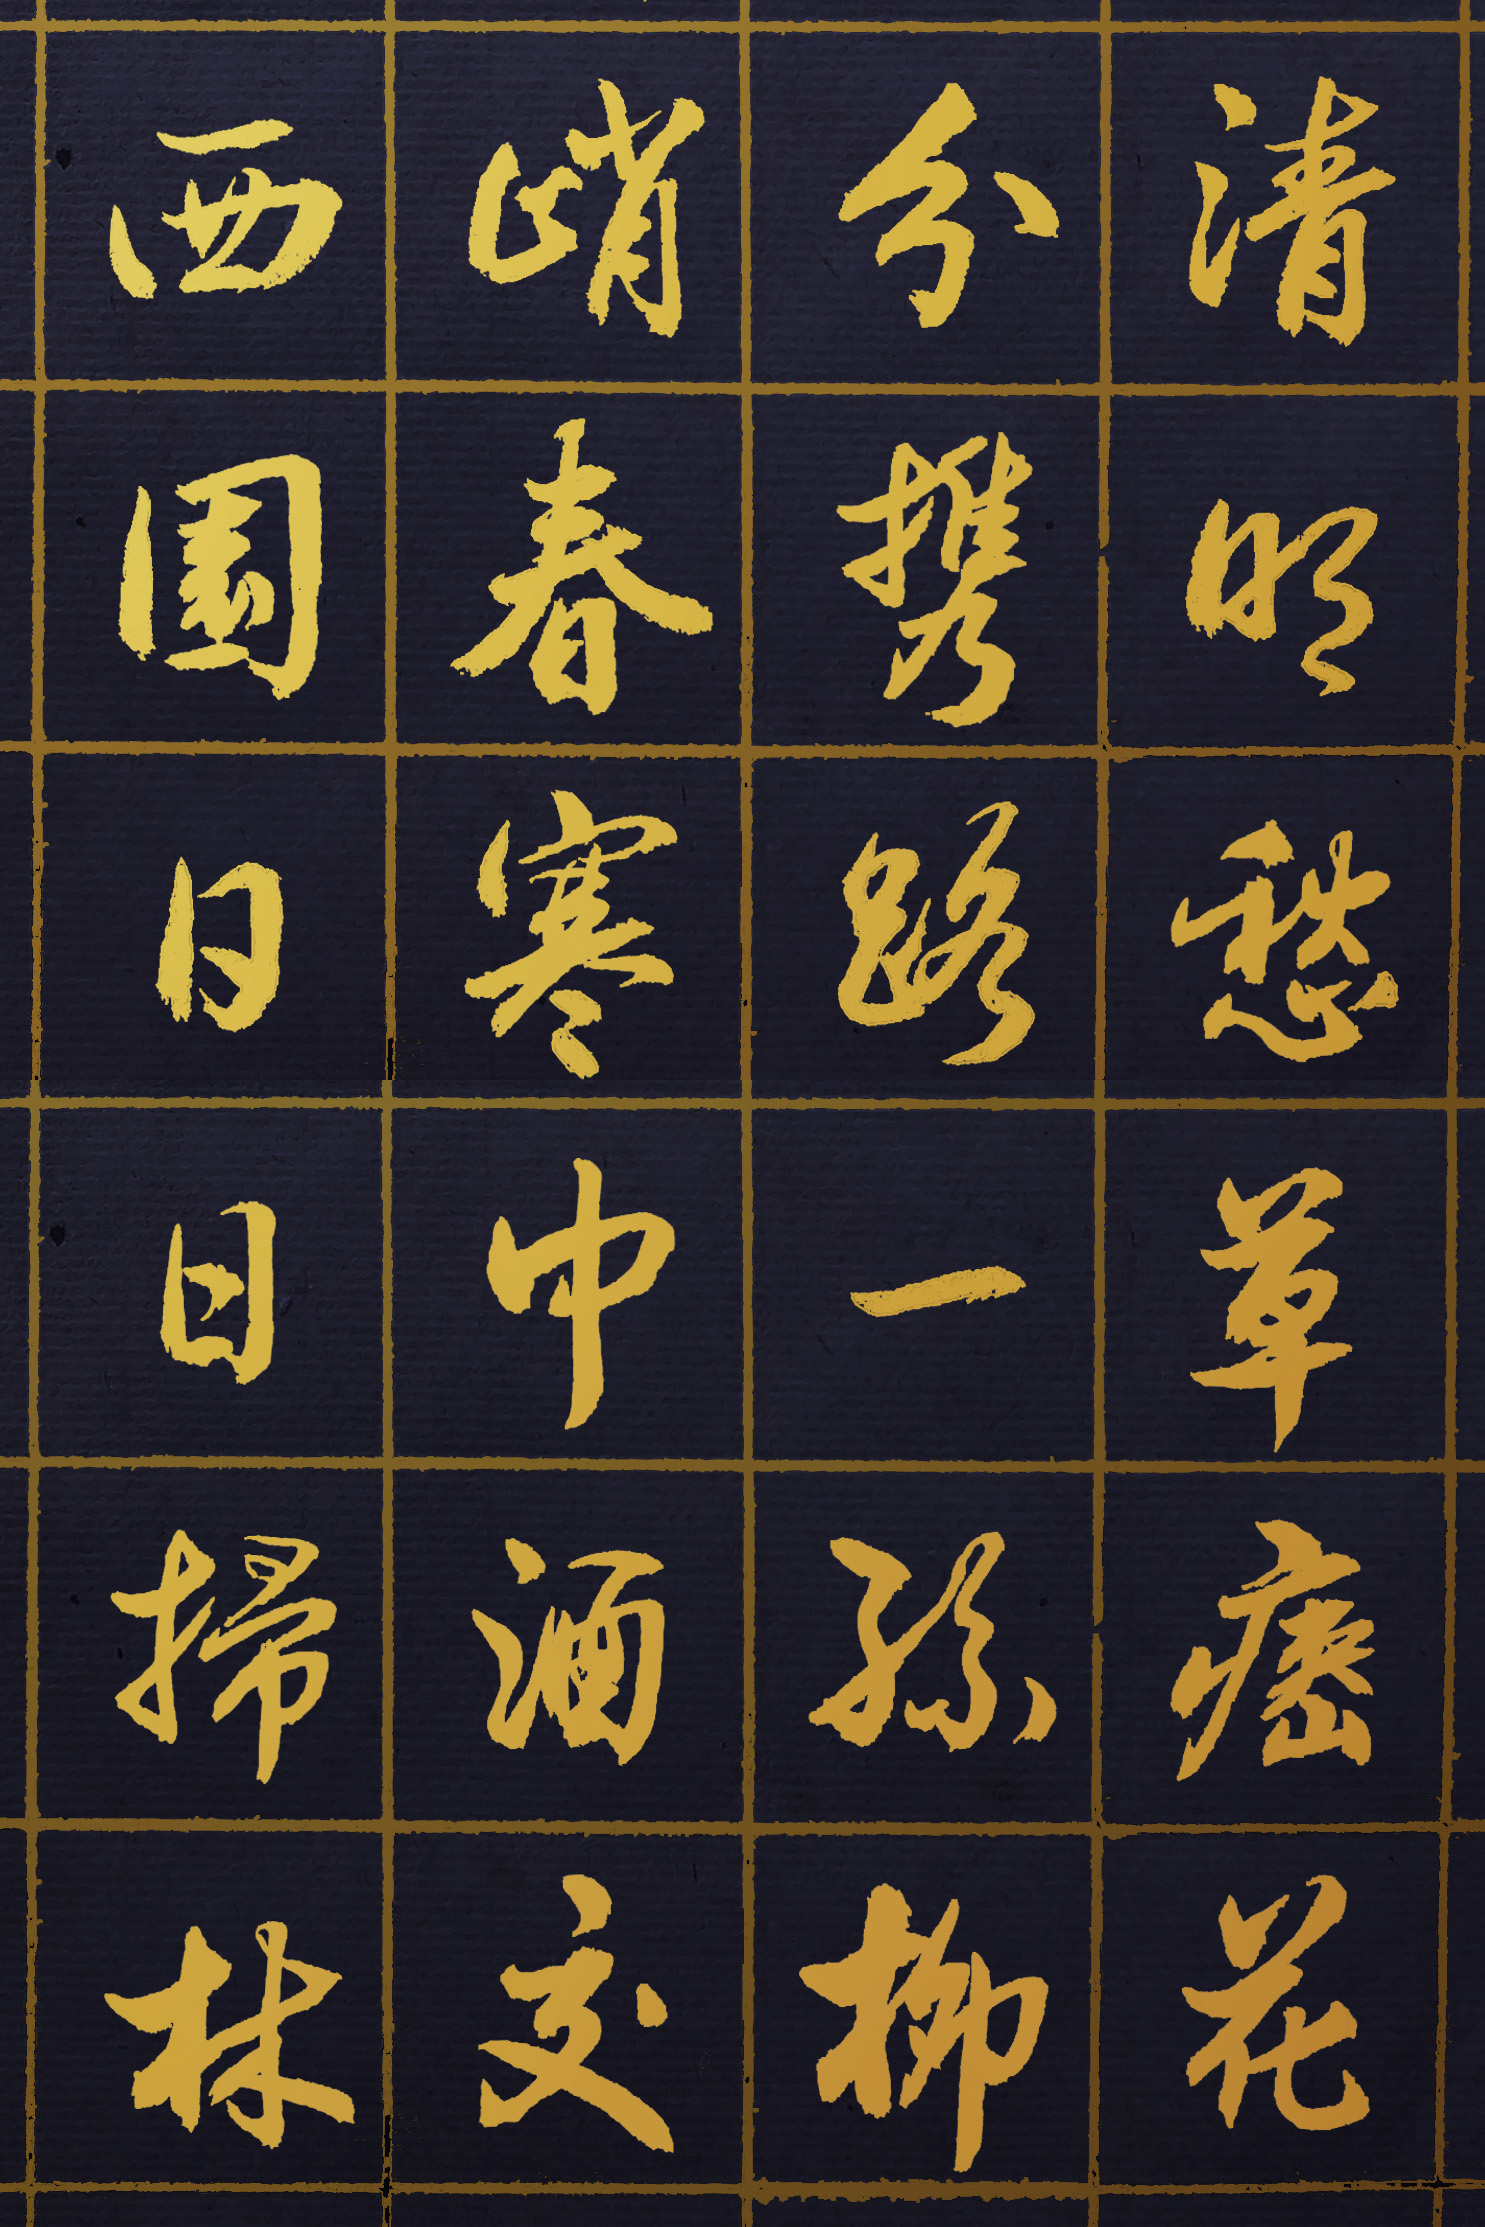 清明愁草瘞花
分携路一絲柳
峭春寒中酒交
西園日日掃林